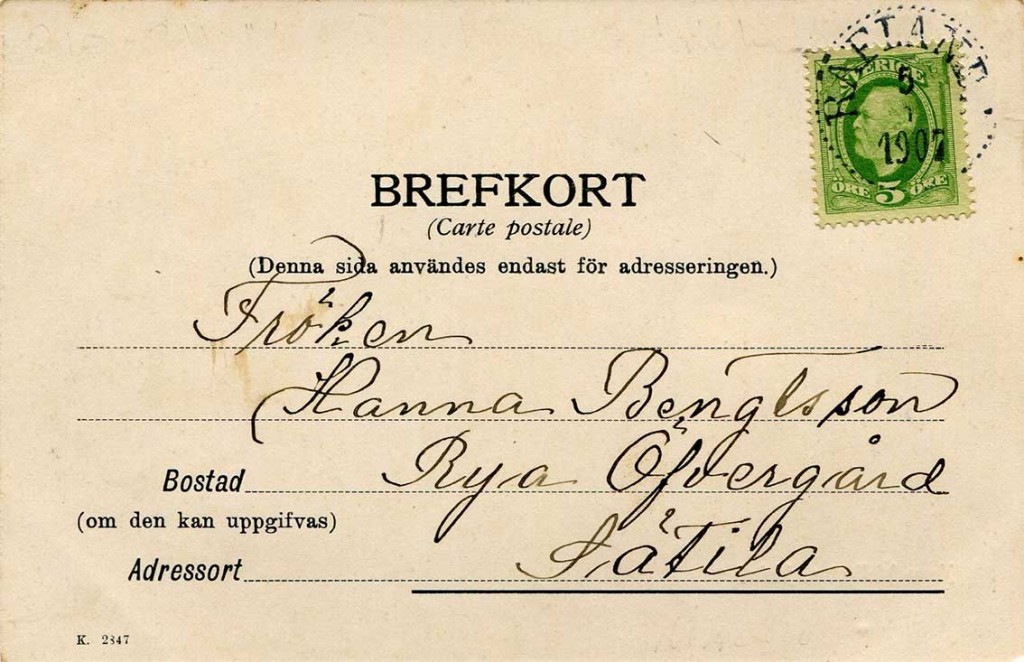 SVERIGE
5
1907
ÖRE 5 ÖRE
BREFKORT
(Carte postale)
(Denna sida användes endast för adresseringen.)
Fröken
Hanna Bengtsson
Bostad Rya Öfvergård
(om den kan uppgifvas)
Adressort Sätila
K. 2347